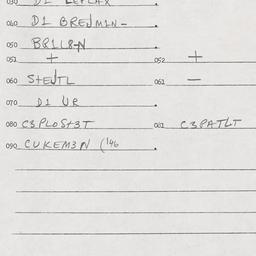 030 D1 LEFLAX .
060 D1 BREJMIN- .
050 BRILL8-N .
051 + 052 +
060 StEJTL 061 —
070 D1 UR .
080 C3PLOSt3T 061 C3PATLT
090 CUKEM3N (146 .